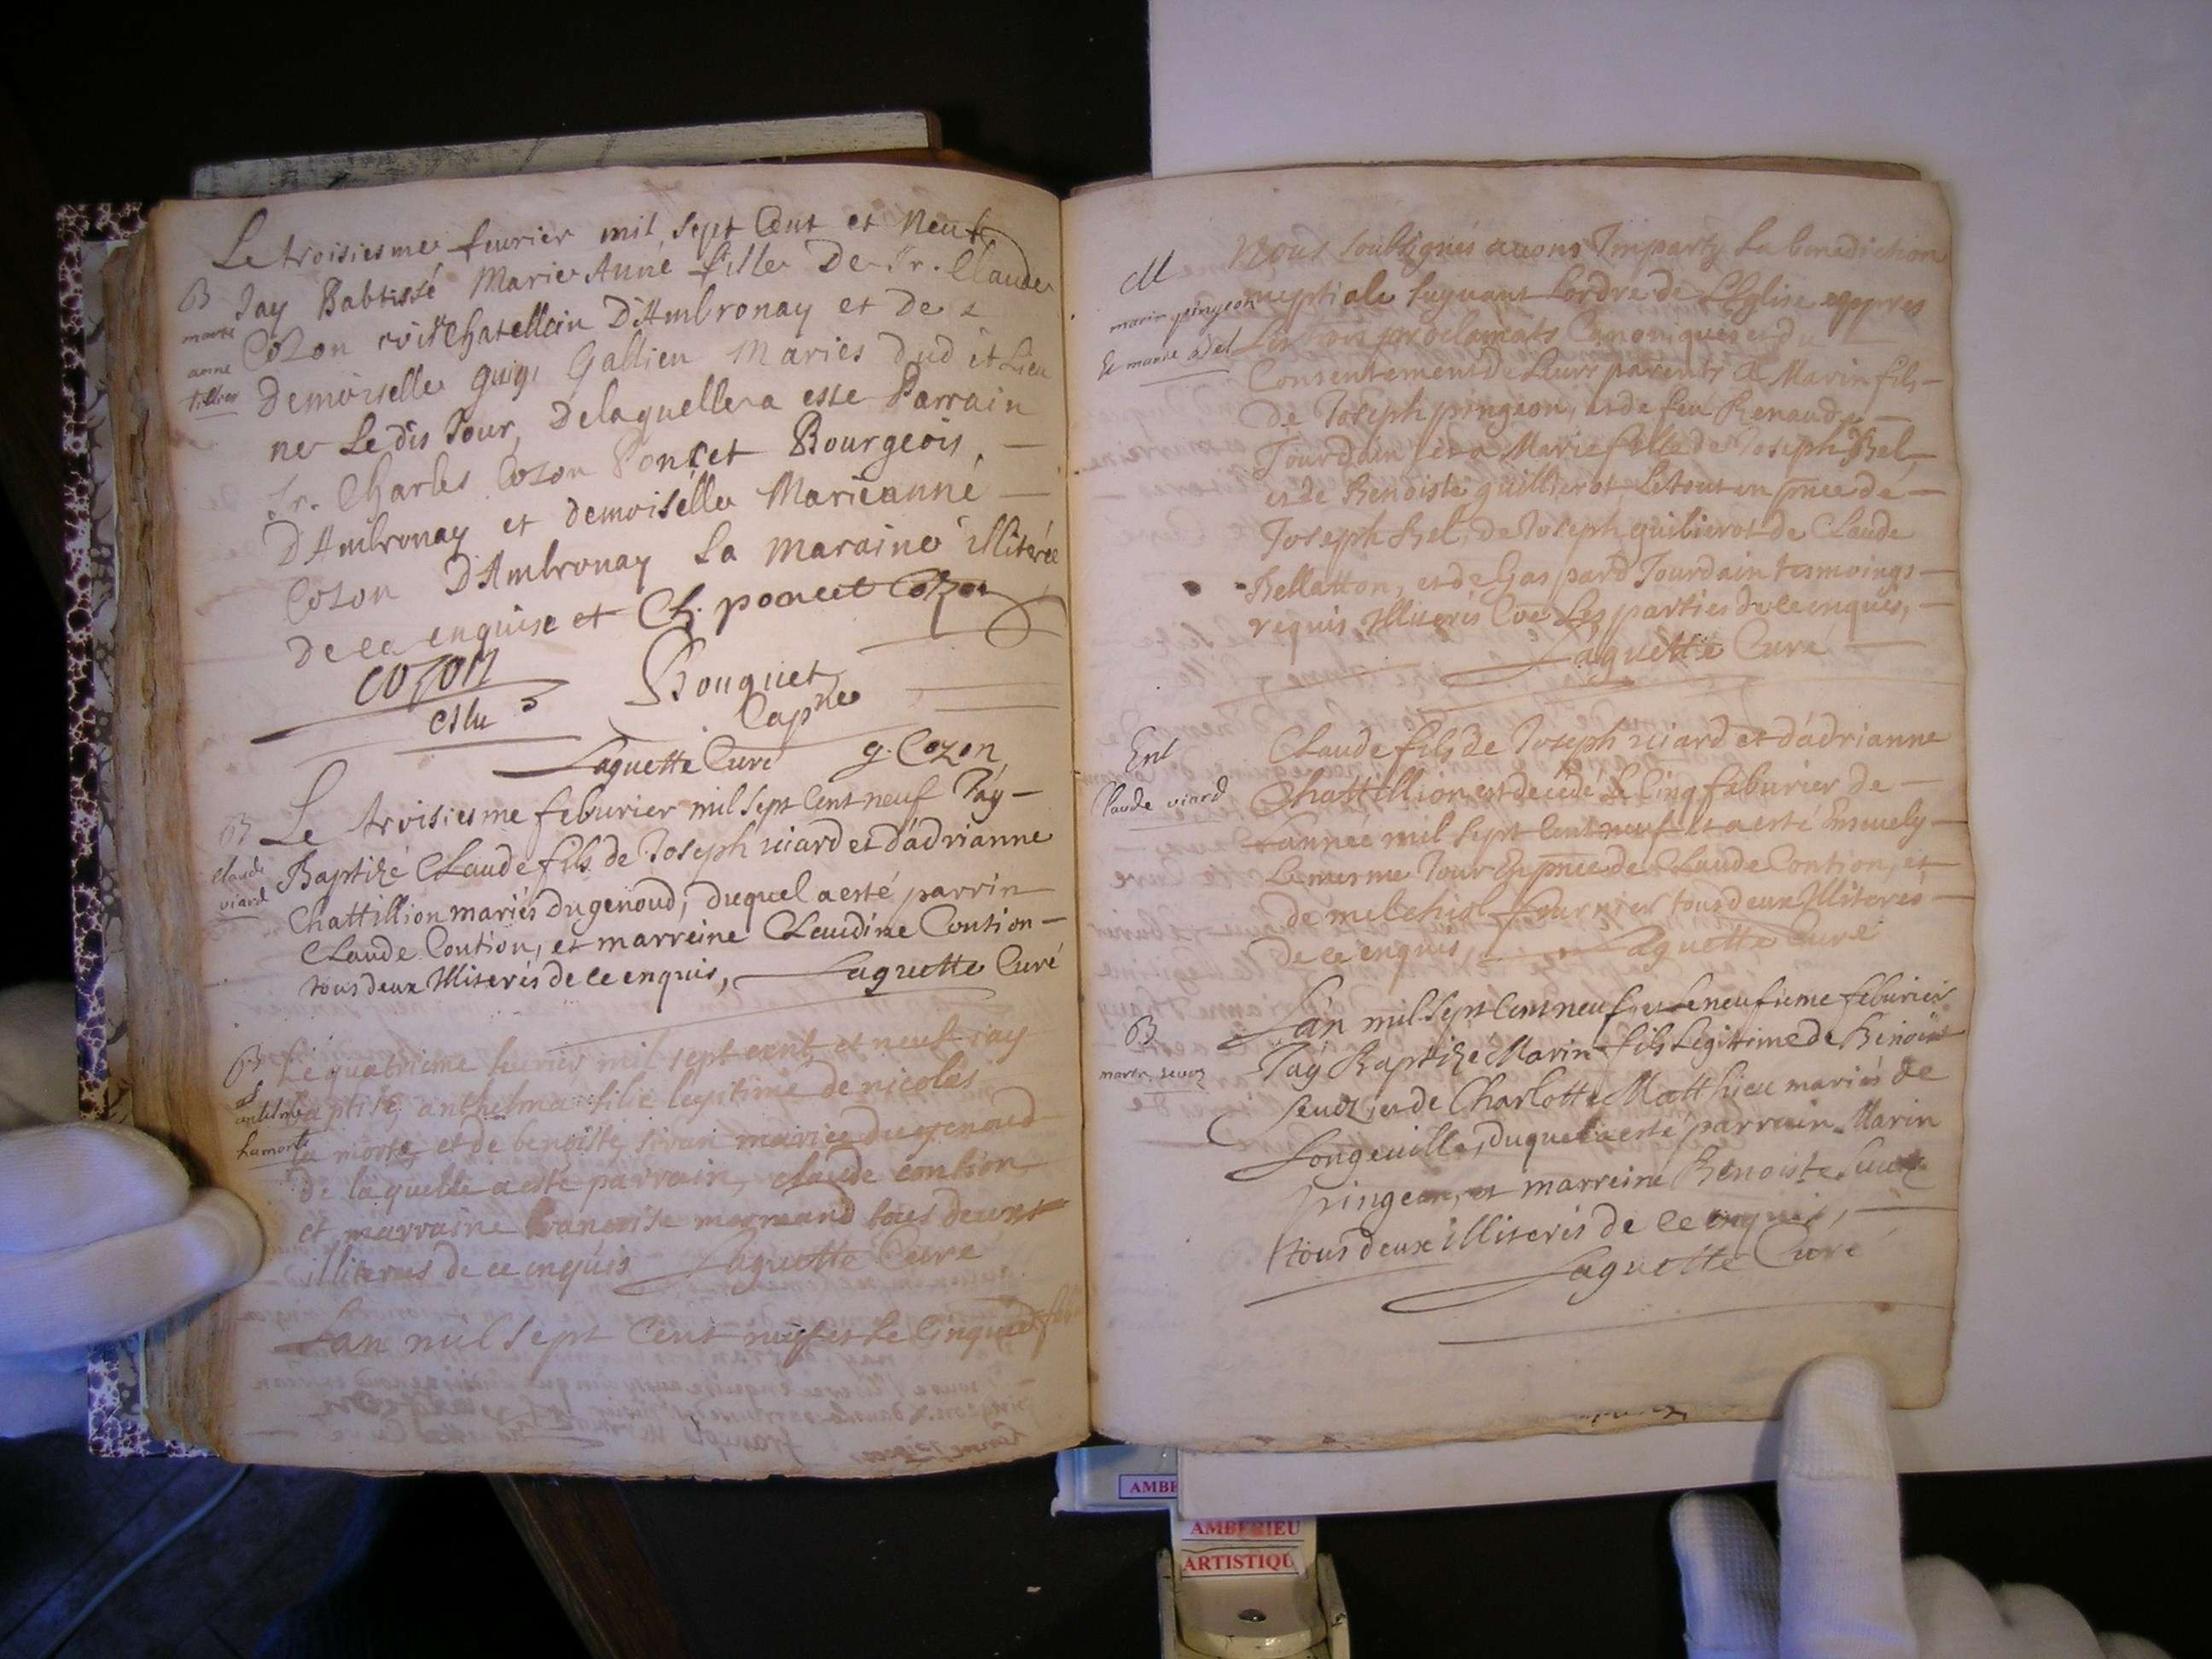 Le troisiesme feurier mil sept Cent et Neuf
B
Jay Babtissé Marie Anne fille De Sr. Claude
marie
anne
Cozon Chatellain D'Ambronay et de
Demoiselle Gallien Mariés dud it Lieu
ne Le dis Jour, De laquelle a este Parrain
Sr. Charles Cozon Poncet Bourgeois
D'Ambronay et demoiselle Marieanne
Cozon D'Ambronay La Maraine illiterée
De ce enquise et Ch. poncet Cozon
cozon
eslu
Bouquet
Capne
Laguette Curé g. Cozon
B
claude
viard
Le troisiesme feburier mil sept Cent neuf Jay
Baptizé Claude fils de Joseph viard et d'adrianne
Chattillion mariés du genoud, duquel a esté parrin
Claude Contion, et marreine Claudine Contion
tous deux Illiterés de ce enquis, Laguette Curé
B
antelme
Lamorte
Le quatrieme feurier mil sept cent et neuf iay
baptisé anthelma filie legitime de nicolas
la morte et de benoiste sivan mariee du genoud
de laquelle a esté parrain, claude contion
et marraine francoise mermand tous deux
illiteres de ce enquis Laguette Curé
Lan mil sept Cent neuf et le Cinquie feb
M
marin pingeon
Et marie
Nous soubsignés auons Imparty La benediction
nuptiale suyuant Lordre de L'Eglise appres
Les trois proclamats Canoniques et du
Consentement de Leurs parents A Marin fils
de Joseph pingeon, et de feu Renaude
Jourdain et a Marie fille de Joseph Bel,
et de Benoiste guillierot, Le tout en pnce de
Joseph Bel, de Joseph guilierot de Claude
Bellatton, et de Gaspard Jourdain tesmoings
requis Illiterés Les parties de ce enquis,
Laguette Curé
Ent
Claude viard
Claude fils de Joseph viard et d'adrianne
Chattillion est decédé le Cinq feburier de
Lannée mil sept Cent neuf et a esté Enseuely
Le mesme Jour En pnce de Claude Contion, et
de melchiol fournier tous deux Illiterés
de ce enquis, Laguette Curé
B
marin
Lan mil sept Cent neuf et Le neufieme feburier
Jay Baptize Marin fils Legittime de Benoist
et de Charlotte Matthieu mariés de
Longeuille, duquel a esté parrain Marin
pingeon, et marreine Benoiste
tous deux illiterés de ce enquis,
Laguette Curé
AMBE
AMBERIEU
ARTISTIQU